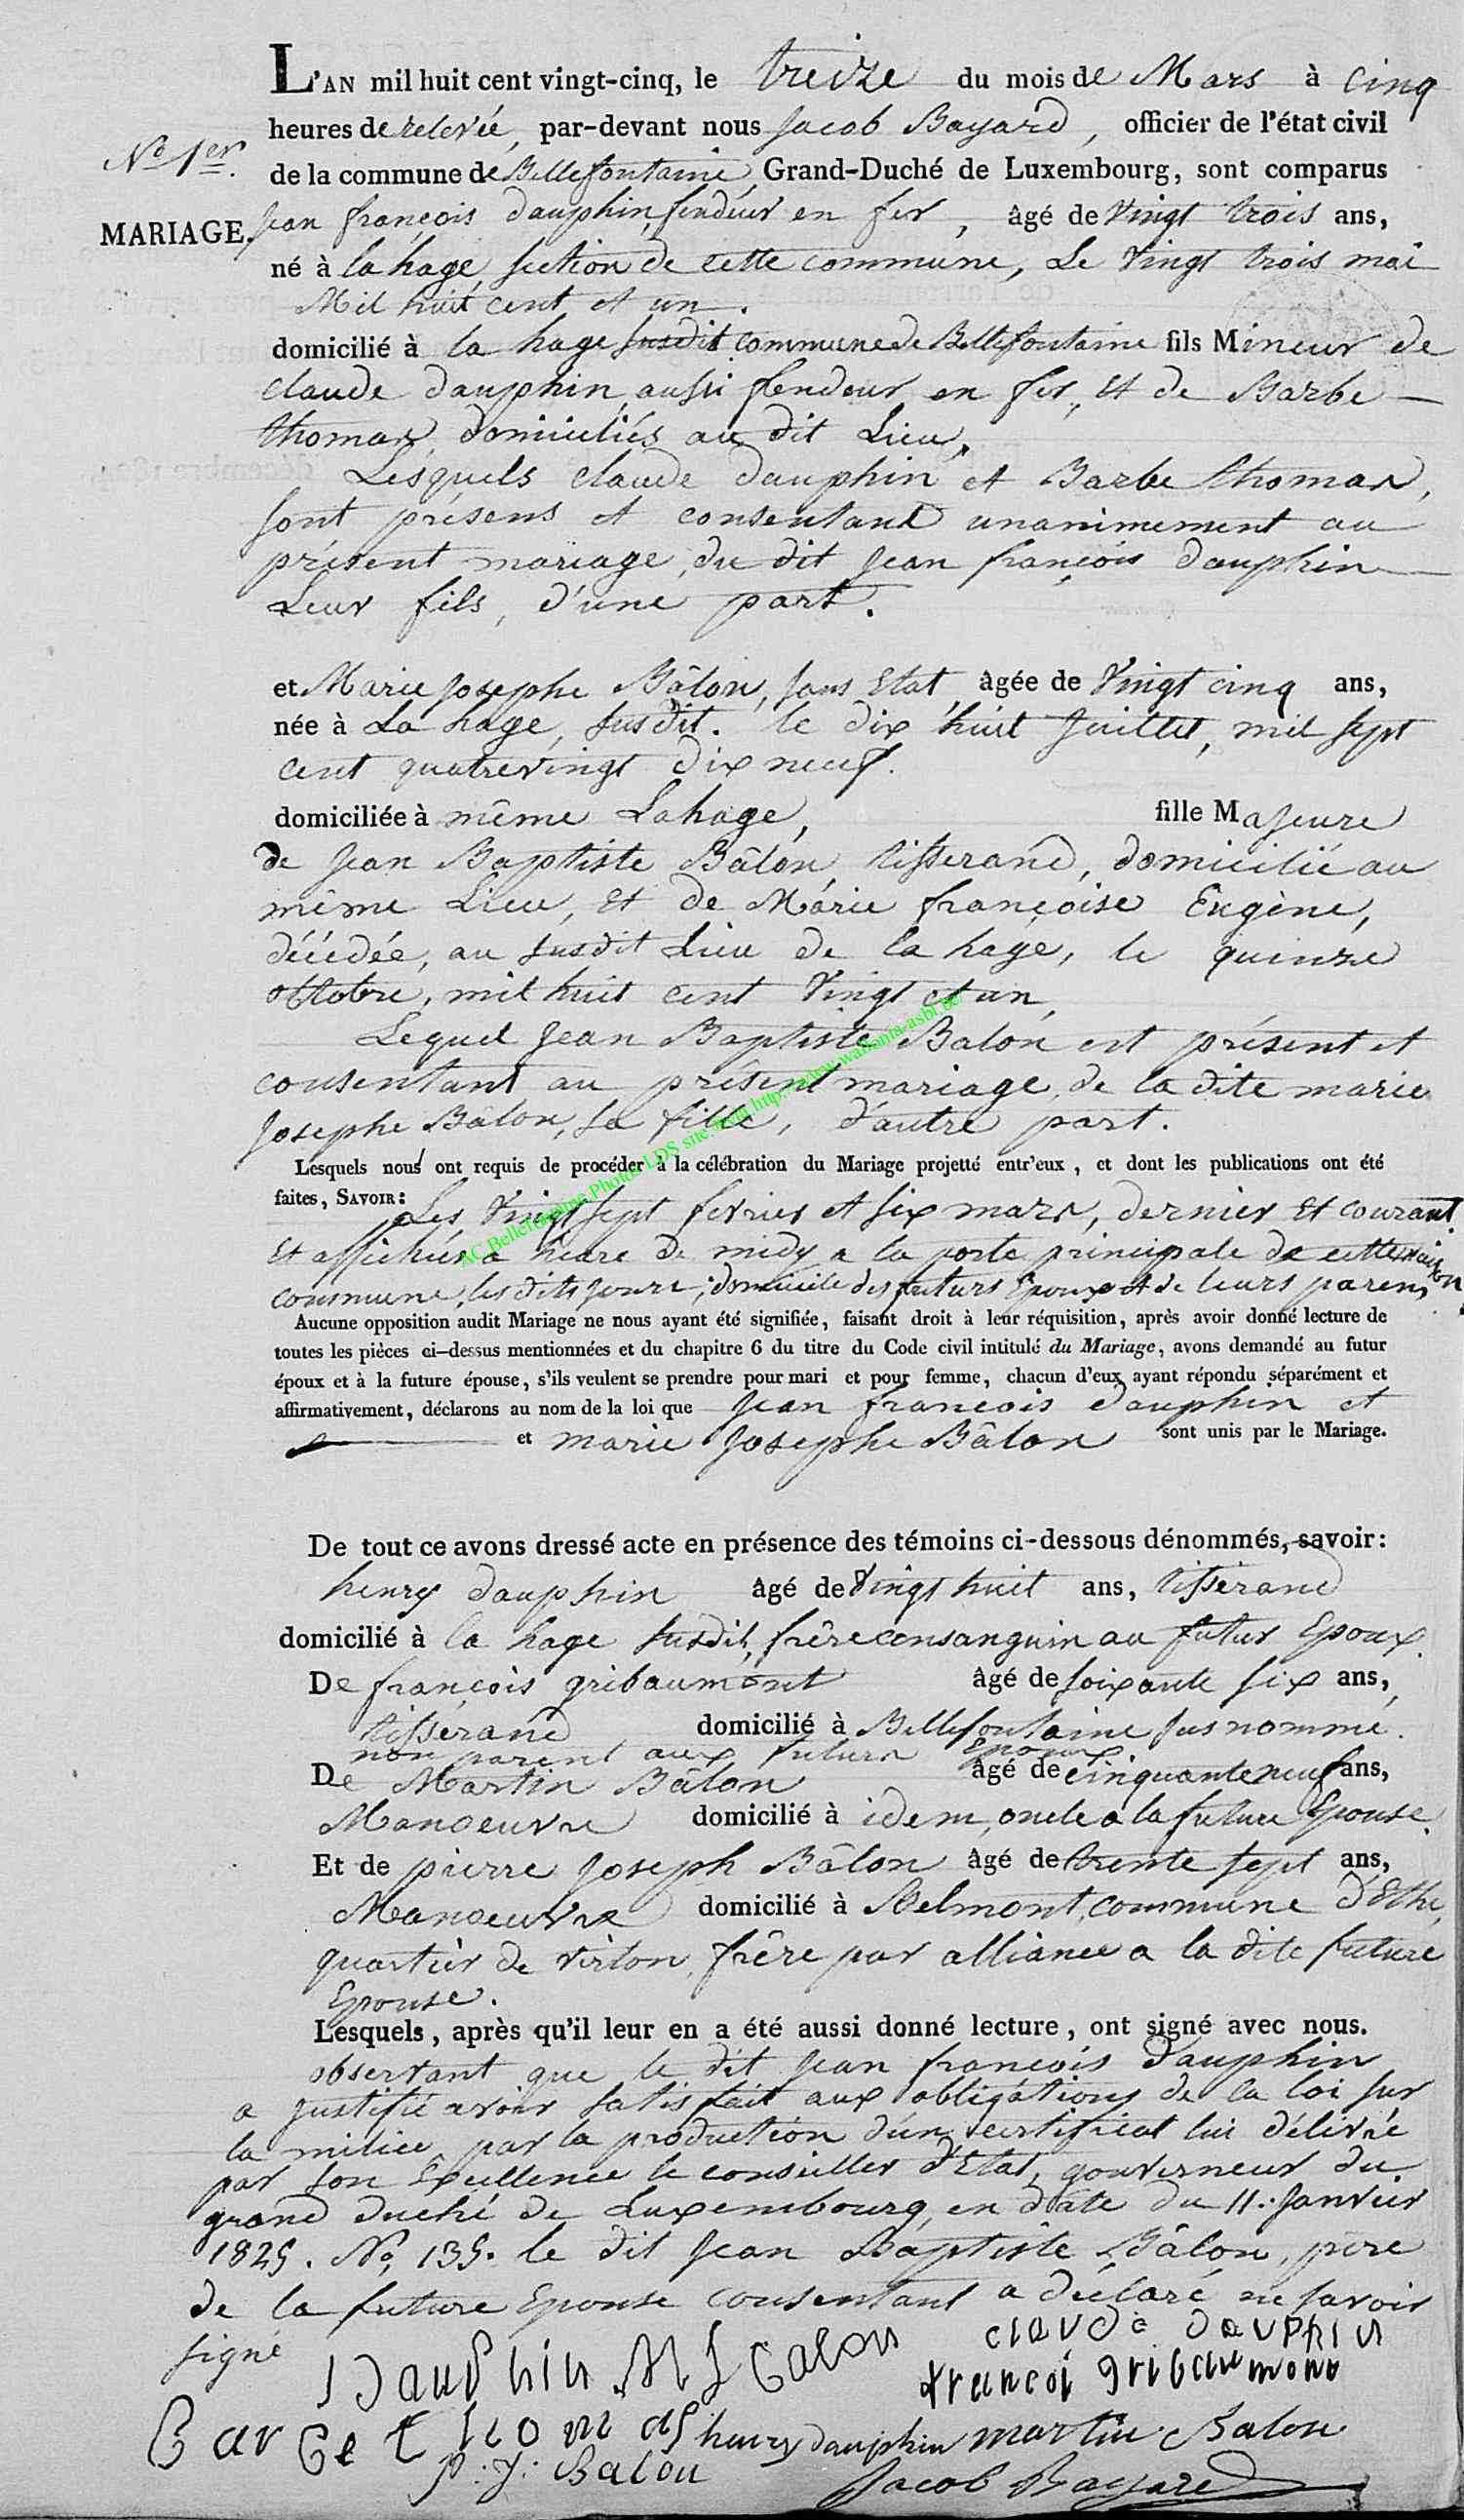 L'AN mil huit cent vingt-cinq, le treize du mois de Mars à cinq
heures de relevée, par-devant nous Jacob Bayard, officier de l'état civil
No 1er.
de la commune de Bellefontaine, Grand-Duché de Luxembourg, sont comparus
MARIAGE.
Jean françois dauphin, fendeur en fer, âgé de Vingt trois ans,
né à la hage, section de cette commune, Le Vingt trois mai
Mil huit cent et un.
domicilié à la hage susdit commune de Bellefontaine fils Mineur de
claude dauphin, aussi fendeur en fer, Et de Barbe
thomas, domiciliés au dit Lieu,
Lesquels claude dauphin et Barbe thomas,
sont présens et consentant unanimement au
présent mariage, du dit Jean françois dauphin
Leur fils, d'une part.
et Marie Josephe Bâlon, sans Etat, âgée de Vingt cinq ans,
née à La hage, susdit. le dix huit Juillet, mil sept
cent quatrevingt dix neuf.
domiciliée à même Lahage, fille Majeure
de Jean Baptiste Bâlon, tisserand, domicilié au
même Lieu, et de Marie françoise Eugène,
décédée, au susdit Lieu de la hage, le quinze
octobre, mil huit cent Vingt et un,
Lequel Jean Baptiste Balon est présent et
consentant au présent mariage, de la dite marie
Josephe Bâlon, sa fille, d'autre part.
Lesquels nous ont requis de procéder à la célébration du Mariage projetté entr'eux, et dont les publications ont été
faites, SAVOIR: Les Vingt sept fevrier et six mars, dernier et courant
Et affichées a heure de midy a la porte principale de cette maison
commune, les dits jours, domicile des futurs Epoux et de leurs parens
Aucune opposition audit Mariage ne nous ayant été signifiée, faisant droit à leur réquisition, après avoir donné lecture de
toutes les pièces ci-dessus mentionnées et du chapitre 6 du titre du Code civil intitulé du Mariage, avons demandé au futur
époux et à la future épouse, s'ils veulent se prendre pour mari et pour femme, chacun d'eux ayant répondu séparément et
affirmativement, déclarons au nom de la loi que Jean francois dauphin et
et marie Josephe Bâlon sont unis par le Mariage.
De tout ce avons dressé acte en présence des témoins ci-dessous dénommés, savoir:
henry dauphin âgé de Vingt huit ans, tisserand
domicilié à la hage susdit, frère consanguin au futur Epoux.
De françois gribaumont âgé de soixante six ans,
tisserand domicilié à Bellefontaine sus nommé.
non parent aux futurs Epoux
De Martin Bâlon âgé de cinquante neuf ans,
Manoeuvre domicilié à idem, oncle a la future Epouse.
Et de pierre Joseph Bâlon âgé de trente sept ans,
Manoeuvre domicilié à Belmont, commune d'Ethe,
quartier de virton, frère par alliance a la dite future
Epouse.
Lesquels, après qu'il leur en a été aussi donné lecture, ont signé avec nous.
observant que le dit Jean françois Dauphin
a justifié avoir satisfait aux obligations de la loi sur
la milice, par la production d'un certificat lui délivré
par son Excellence le conseiller d'Etat, gouverneur du
grand duché de Luxembourg, en date du 11. Janvier
1825. No, 135. le dit Jean Baptiste Bâlon, père
de la future Epouse consentant a déclaré ne savoir
signé
claude dauphin
J Dauphin M J Balon
francoi gribaumont
Barbe thomas henry dauphin martin Balon
P: J: Balon
Jacob Bayard